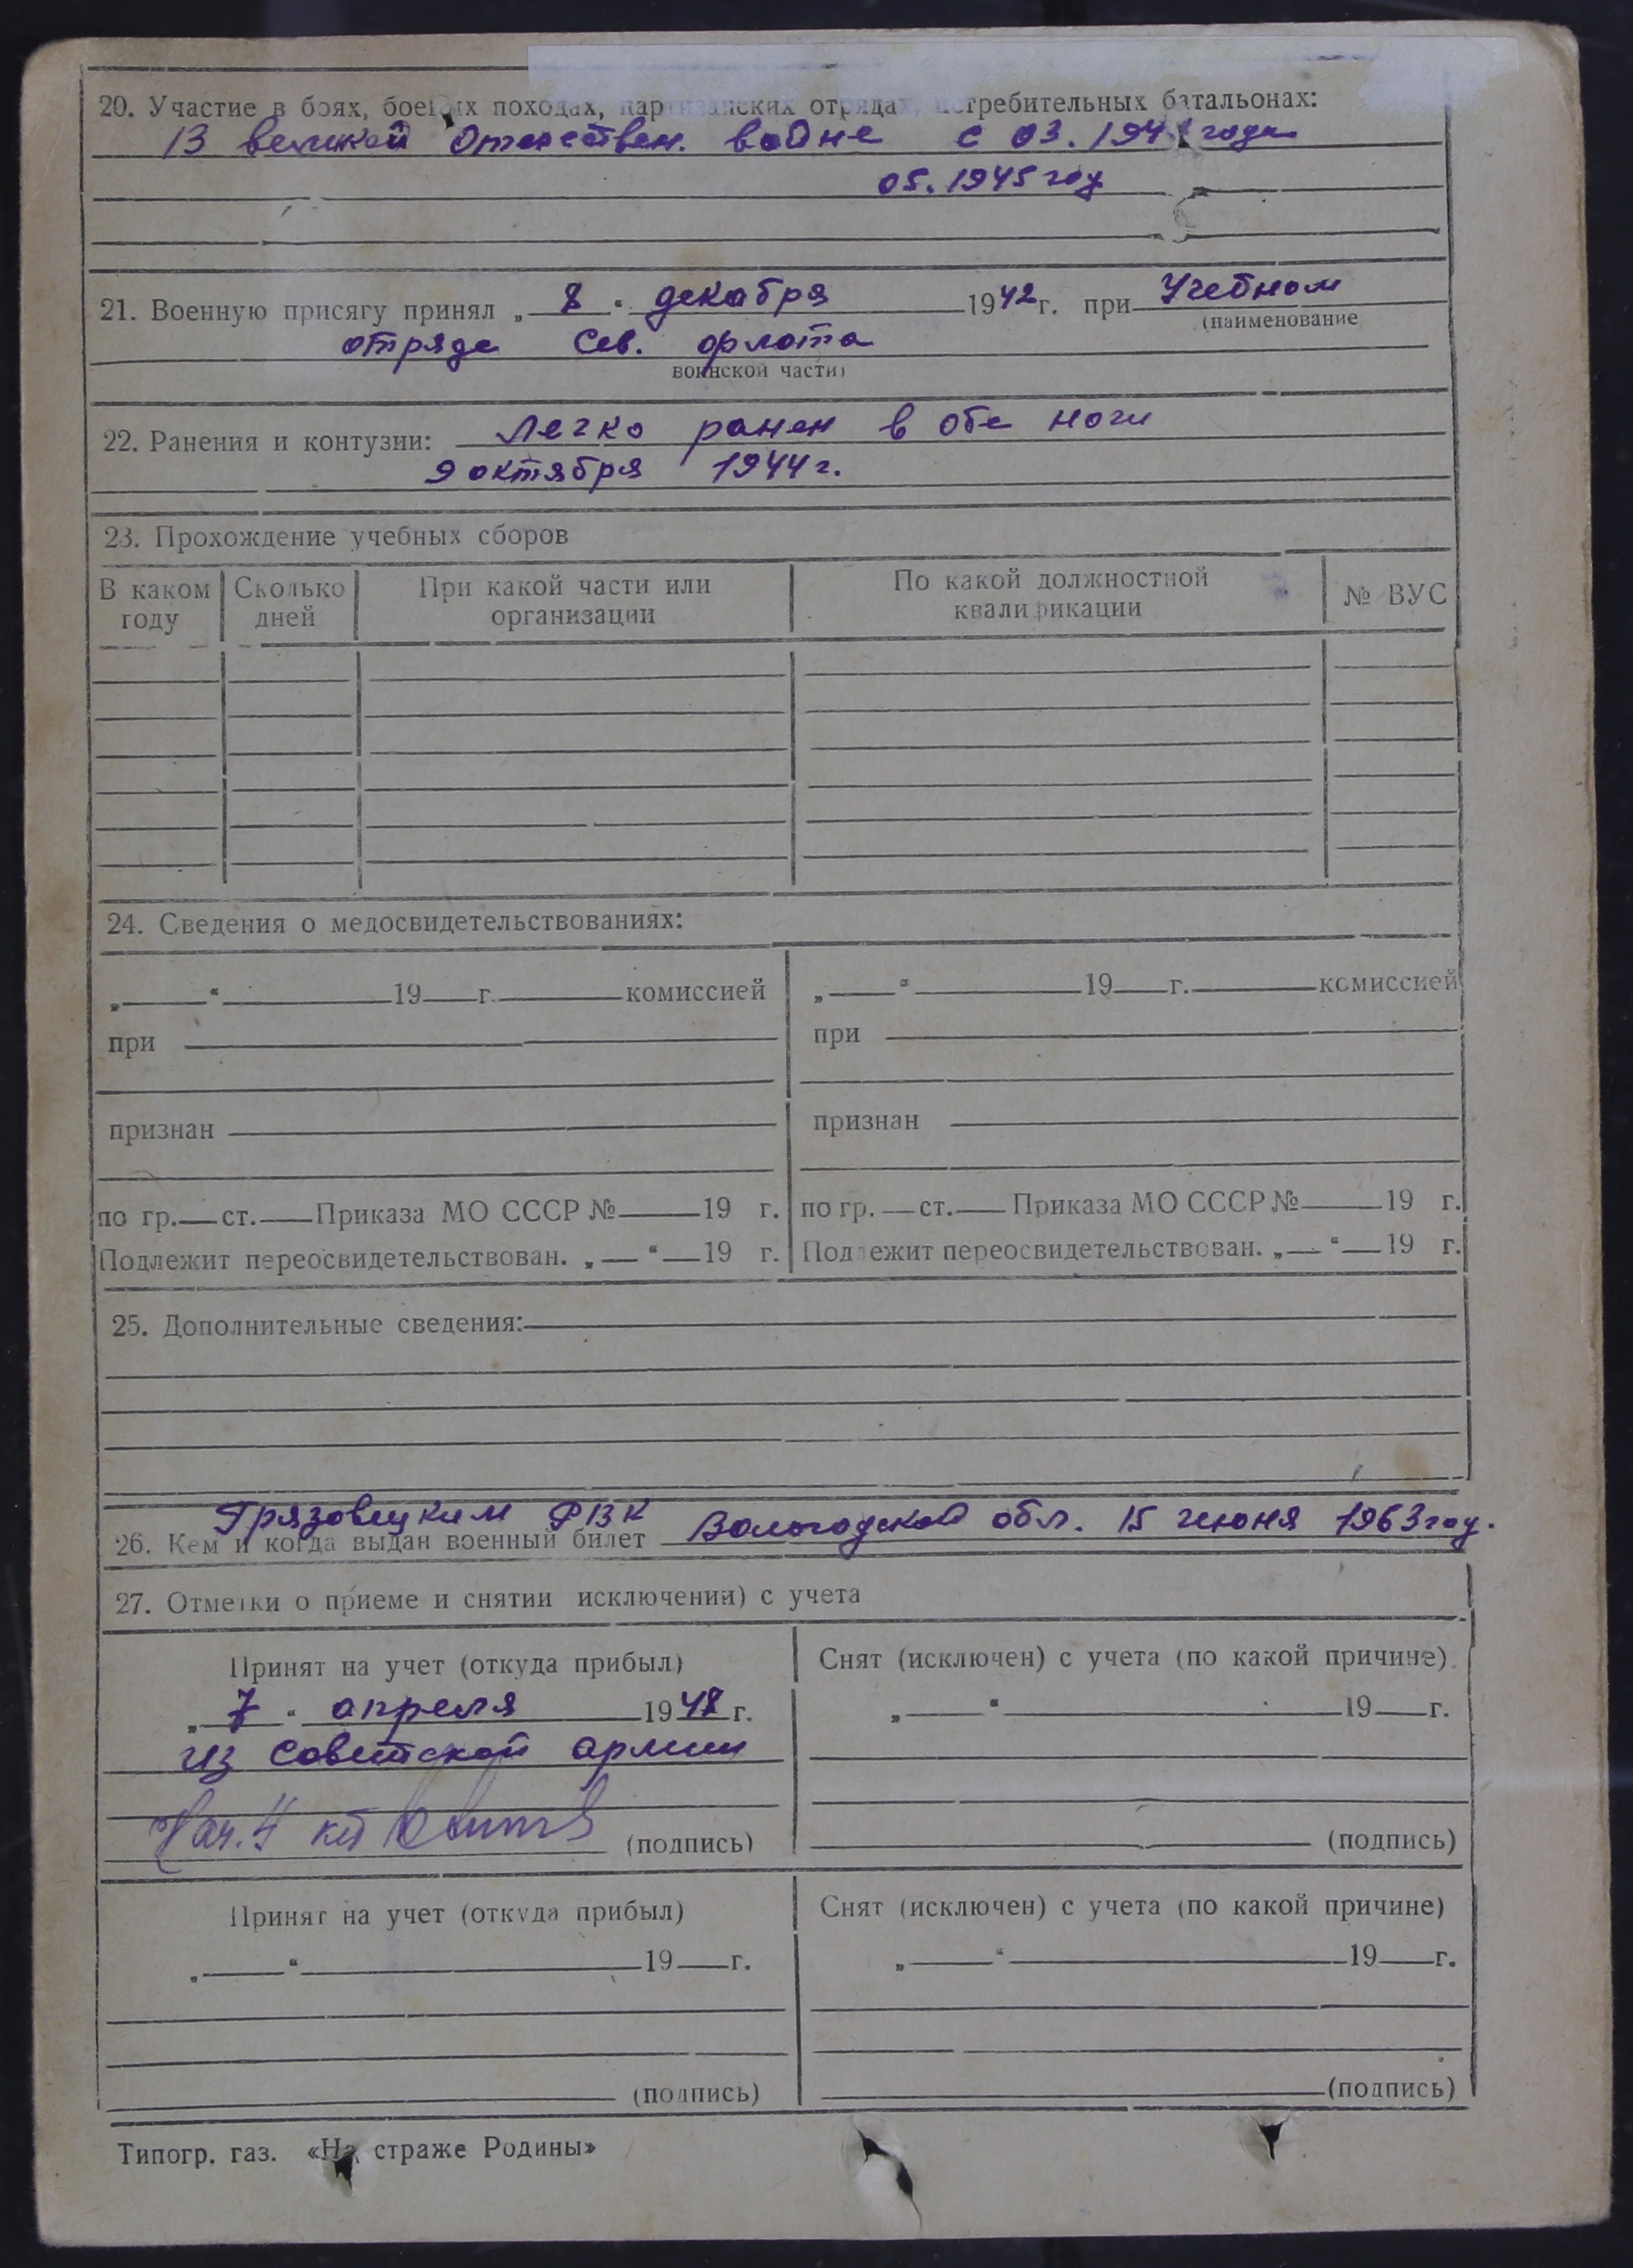 20. Участие в боях, боевых походах, партизанских отрядах, истребительных батальонах:
В великой Отечествен. войне с 03. 194 года
05. 1945 году
21. Военную присягу принял „ 8 “ декабря 1942 г. при Учебном
(наименование
отряде Сев. флота
воинской части)
22. Ранения и контузии: Легко ранен в обе ноги
9 октября 1944 г.
23. Прохождение учебных сборов
В каком году Сколько дней При какой части или организации По какой должностной квалификации № ВУС
24. Сведения о медосвидетельствованиях:
„ “ 19 г. комиссией „ “ 19 г. комиссией
при при
признан признан
по гр. ст. Приказа МО СССР № 19 г. по гр. ст. Приказа МО СССР № 19 г.
Подлежит переосвидетельствован. „ “ 19 г. Подлежит переосвидетельствован. „ “ 19 г.
25. Дополнительные сведения:
Грязовецким РВК
26. Кем и когда выдан военный билет Вологодской обл. 15 июня 1963 году.
27. Отметки о приеме и снятии исключении) с учета
Принят на учет (откуда прибыл) Снят (исключен) с учета (по какой причине)
„ 7 “ апреля 1948 г. „ “ 19 г.
из советской армии
Нач. 4 (подпись) (подпись)
Принят на учет (откуда прибыл) Снят (исключен) с учета (по какой причине)
„ “ 19 г. „ “ 19 г.
(подпись) (подпись)
Типогр. газ. «На страже Родины»